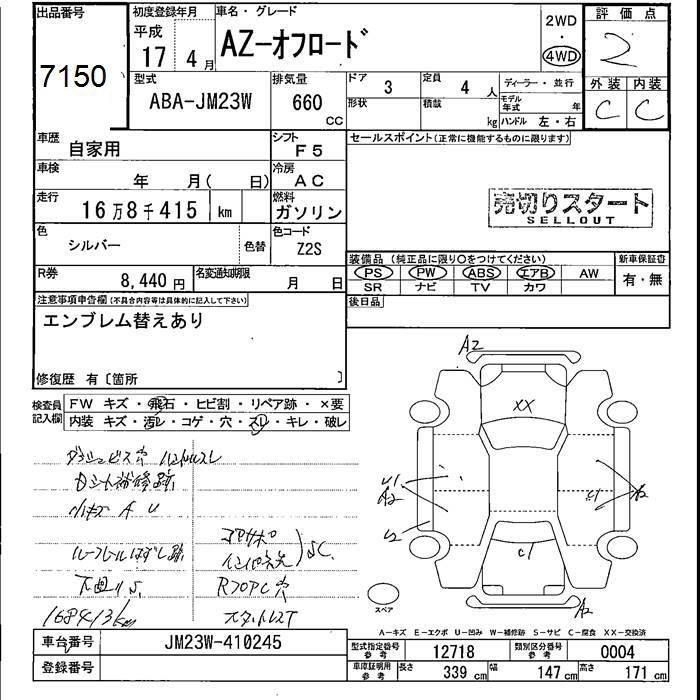 出品番号 7150
初度登録年月 平成 17 4月
車名・グレード AZ-オフロード
2WD・4WD
評価点 2
外装 C 内装 C
型式 ABA-JM23W
排気量 660 CC
ドア 3
形状
定員 4人
積載 kg
ディーラー・並行
モデル年式 年
ハンドル 左・右
車歴 自家用
シフト F5
セールスポイント(正常に機能するものに限ります)
車検 年 月( 日)
冷房 AC
走行 16万8千415 km
燃料 ガソリン
売切りスタート
SELLOUT
色 シルバー 色替
色コード Z2S
装備品 (純正品に限り○をつけてください)
新車保証書 有・無
PS PW ABS エアB AW
SR ナビ TV カワ
後日品
R券 8,440円
名変通知期限 月 日
注意事項申告欄(不具合内容等は具体的に記入して下さい)
エンブレム替えあり
修復歴 有〔箇所 〕
検査員記入欄
FW キズ・飛石・ヒビ割・リペア跡・×要
内装 キズ・汚レ・コゲ・穴・スレ・キレ・破レ
ダッシュビス穴 ハンドルスレ
Dシート補修跡
小キズ A U
ルーフレールはずし跡
下回りS
168413km
コアサポ
インパネ穴
SC
R70PC穴
スタットレスT
A2
XX
U1
A2
U2
C1
A2
スペア
A-キズ E-エクボ U-凹み W-補修跡 S-サビ C-腐食 XX-交換済
車台番号 JM23W-410245
登録番号
型式指定番号参考 12718
類別区分番号参考 0004
車庫証明用参考 長さ 339 cm 幅 147 cm 高さ 171 cm